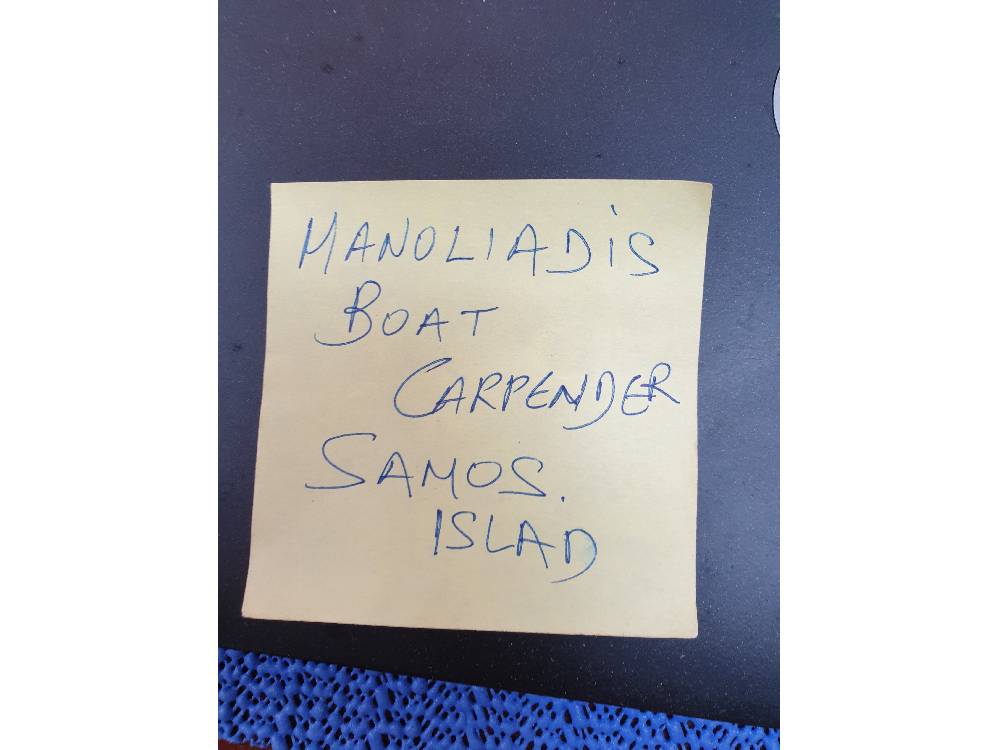 MANOLIADIS
BOAT
CARPENDER
SAMOS.
ISLAD